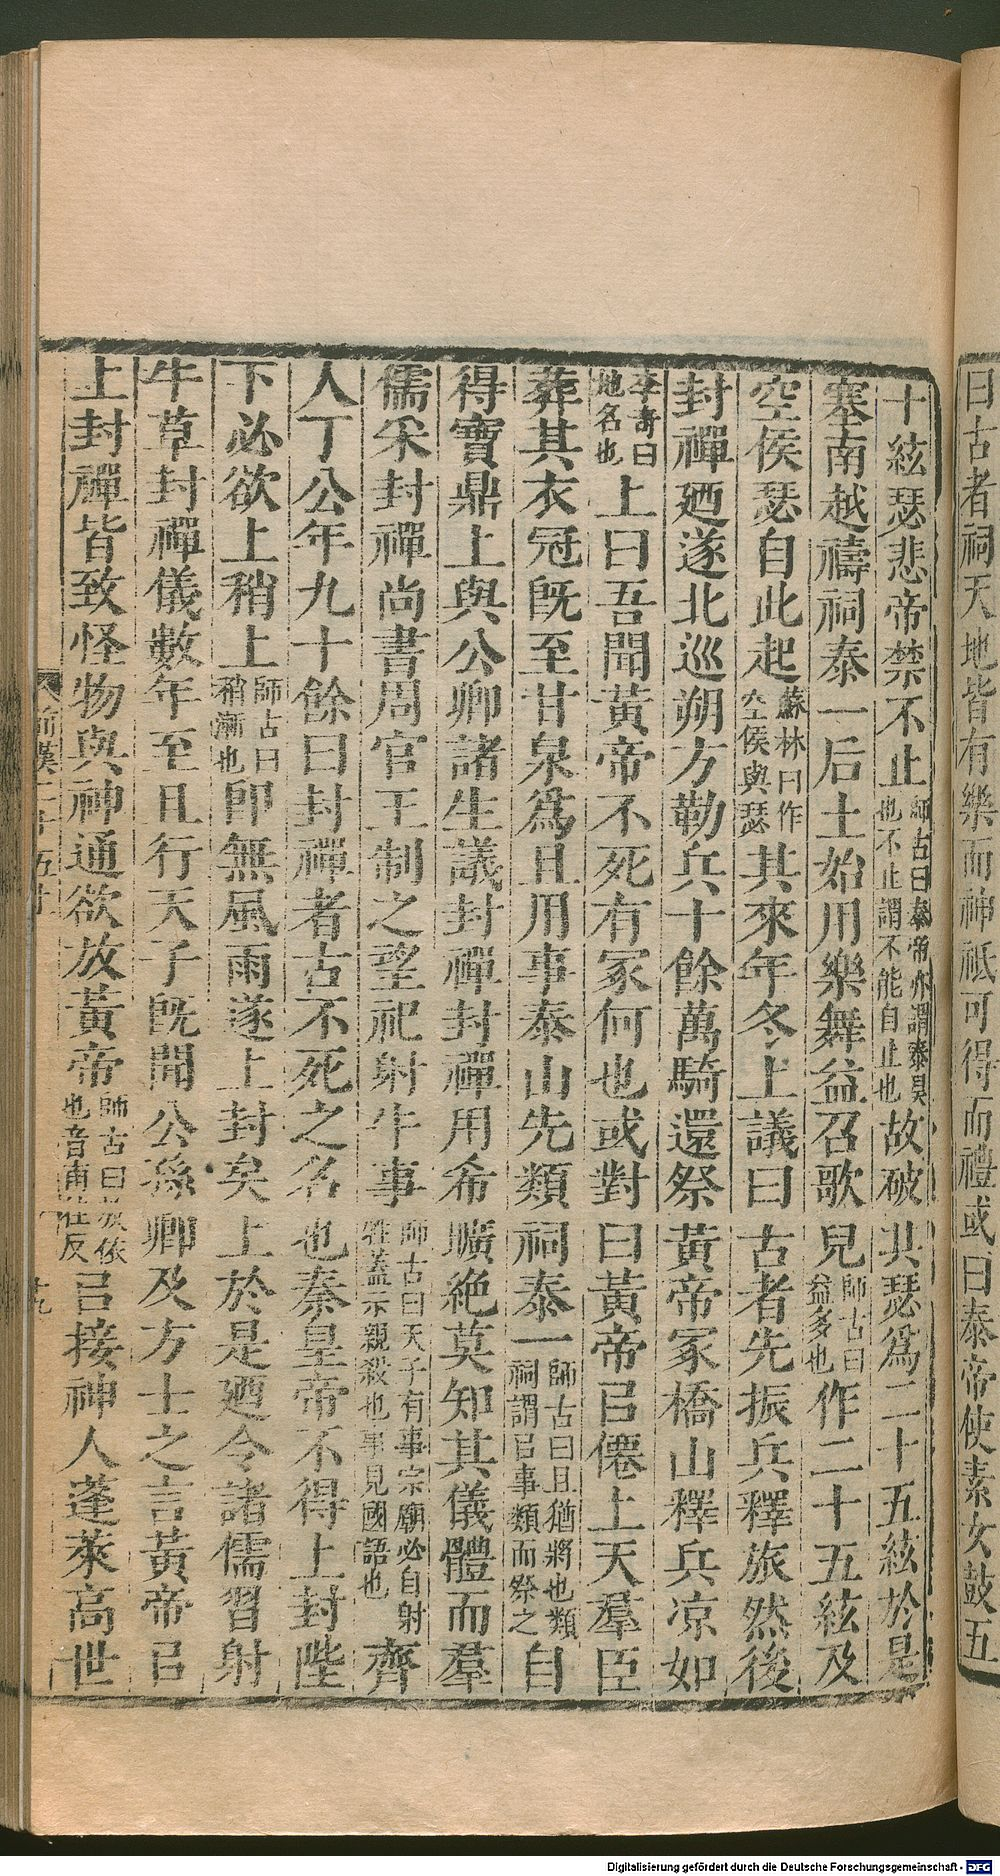 曰古者祠天地皆有樂而神祇可得而禮或曰泰帝使素女鼓五
十絃瑟悲帝禁不止師古曰泰帝亦謂泰昊也不止謂不能自止也故破其瑟爲二十五絃於是
塞南越禱祠泰一后土始用樂舞益召歌兒師古曰益多也作二十五絃及
空侯瑟自此起蘇林曰作空侯與瑟其來年冬上議曰古者先振兵釋旅然後
封禪廼遂北巡朔方勒兵十餘萬騎還祭黃帝冢橋山釋兵凉如
李奇曰地名也上曰吾聞黃帝不死有冢何也或對曰黃帝㠯僊上天羣臣
葬其衣冠旣至甘泉爲且用事泰山先類祠泰一師古曰且猶將也類祠謂㠯事類而祭之自
得寶鼎上與公卿諸生議封禪封禪用希曠絶莫知其儀體而羣
儒采封禪尚書周官王制之望祀射牛事師古曰天子有事宗廟必自射牲蓋示親殺也事見國語也齊
人丁公年九十餘曰封禪者古不死之名也秦皇帝不得上封陛
下必欲上稍上師古曰稍漸也卽無風雨遂上封矣上於是廼令諸儒習射
牛草封禪儀數年至且行天子旣聞公孫卿及方士之言黃帝㠯
上封禪皆致怪物與神通欲放黃帝師古曰放依也音甫往反㠯接神人蓬萊高世
前漢二十五上
十九
Digitalisierung gefördert durch die Deutsche Forschungsgemeinschaft - DFG